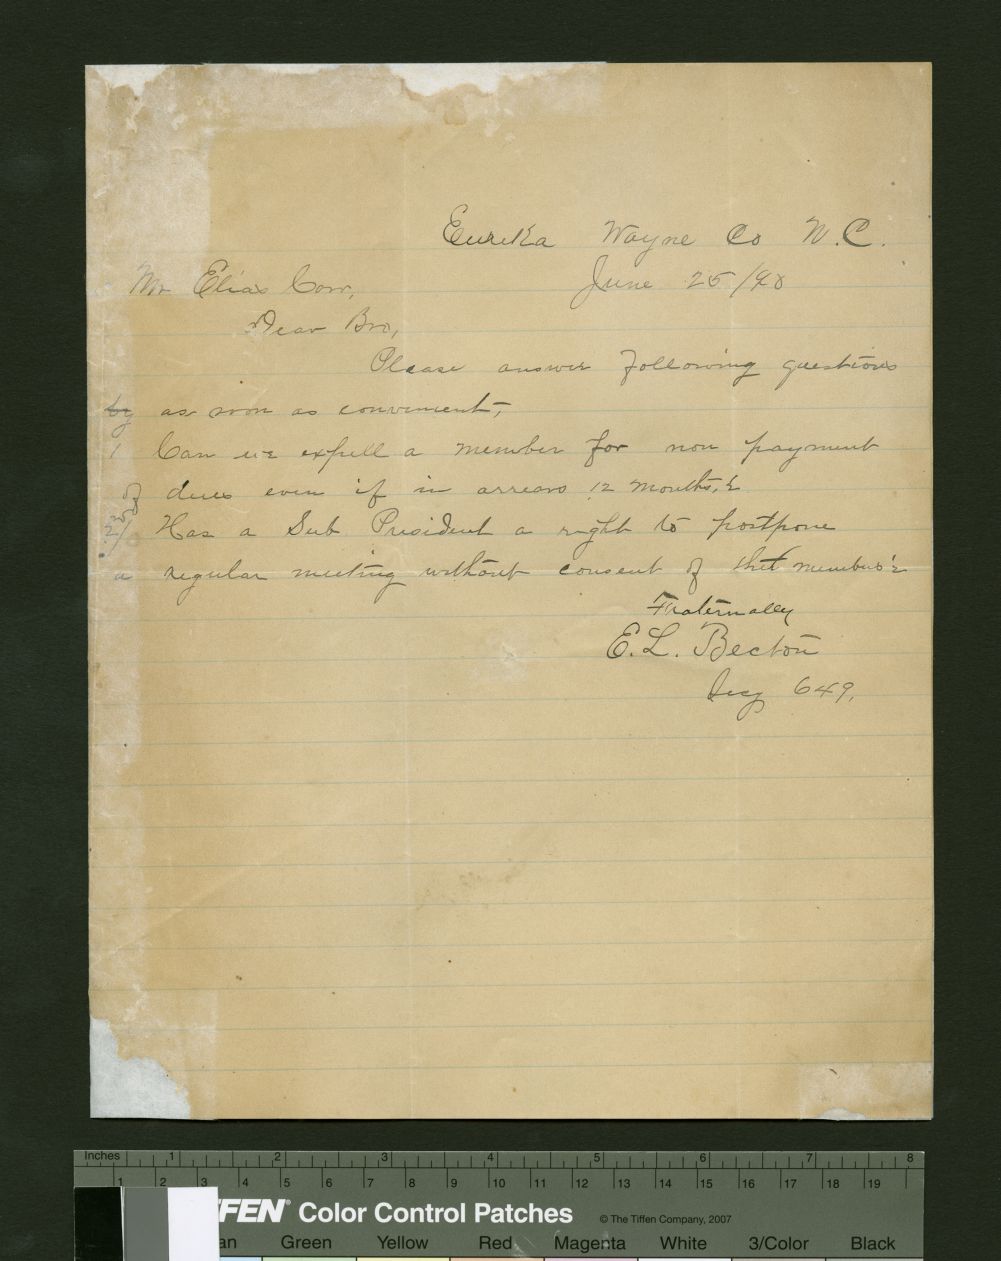 Eureka Wayne Co N.C.
June 25/90
Mr Elias Carr,
Dear Bro,
Please answer following questions
as soon as convenient,
1 Can we expell a member for non payment
dues even if in arrears 12 months, &
2 Has a Sub President a right to postpone
a regular meeting without consent of the member's
Fraternally
E. L. Becton
Secy 649,
Inches 1 2 3 4 5 6 7 8
1 2 3 4 5 6 7 8 9 10 11 12 13 14 15 16 17 18 19
FFEN® Color Control Patches © The Tiffen Company, 2007
an Green Yellow Red Magenta White 3/Color Black